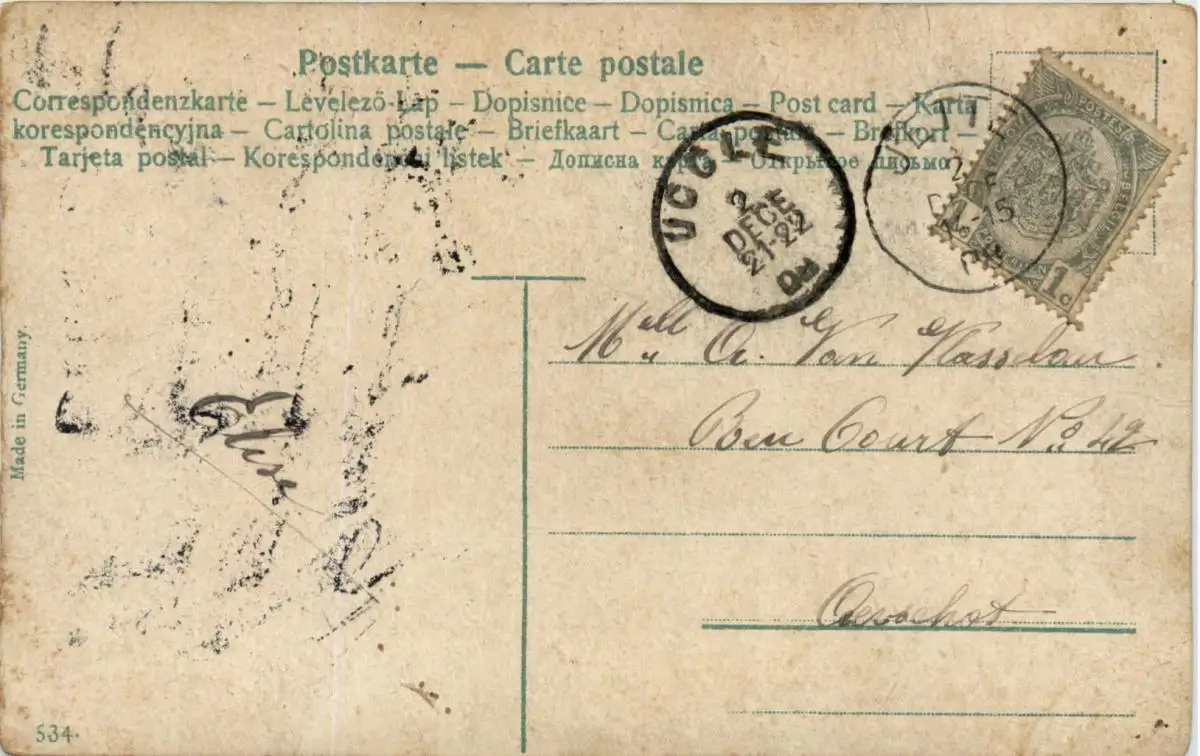 Postkarte — Carte postale
Correspondenzkarte – Levelező-Lap – Dopisnice – Dopisnica – Post card – Karta
korespondencyjna – Cartolina postale – Briefkaart – Carta postale – Brefkort –
Tarjeta postal – Korespondenčni listek – Дописна карта – Открытое письмо
UCCLE
2
DECE
21-22
POSTES
1c
Mell A. Van
Court No 42
Aerschot
Elise
Made in Germany.
534.